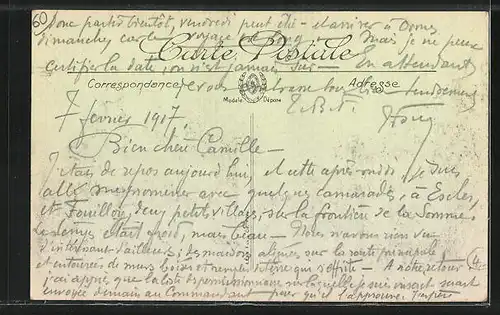 donc partir bientôt, vendredi peut être - et arriver à Doms
dimanche, car le voyage est long - Mais je ne peux
certifier la date, on n'est jamais sûr - En attendant
Carte Postale
Correspondance
Adresse
je vous embrasse tous tendrement
Modèle Déposé
T.B.A.
7 février 1917
Bien cher Camille -
J'étais de repos aujourd'hui, et cette après-midi je suis
allé me promener avec quelques camarades, à Escles
et Fouilloy, deux petits villages, sur la frontière de la Somme.
Le temps était froid, mais beau - Nous n'avons rien vu
d'intéressant d'ailleurs ; des maisons alignées sur la route principale
et entourées de murs de terre qui s'effrite - A notre retour
j'ai appris que la liste de permissionnaires sur laquelle je suis inscrit serait
envoyée demain au Commandant pour qu'il l'approuve. J'espère